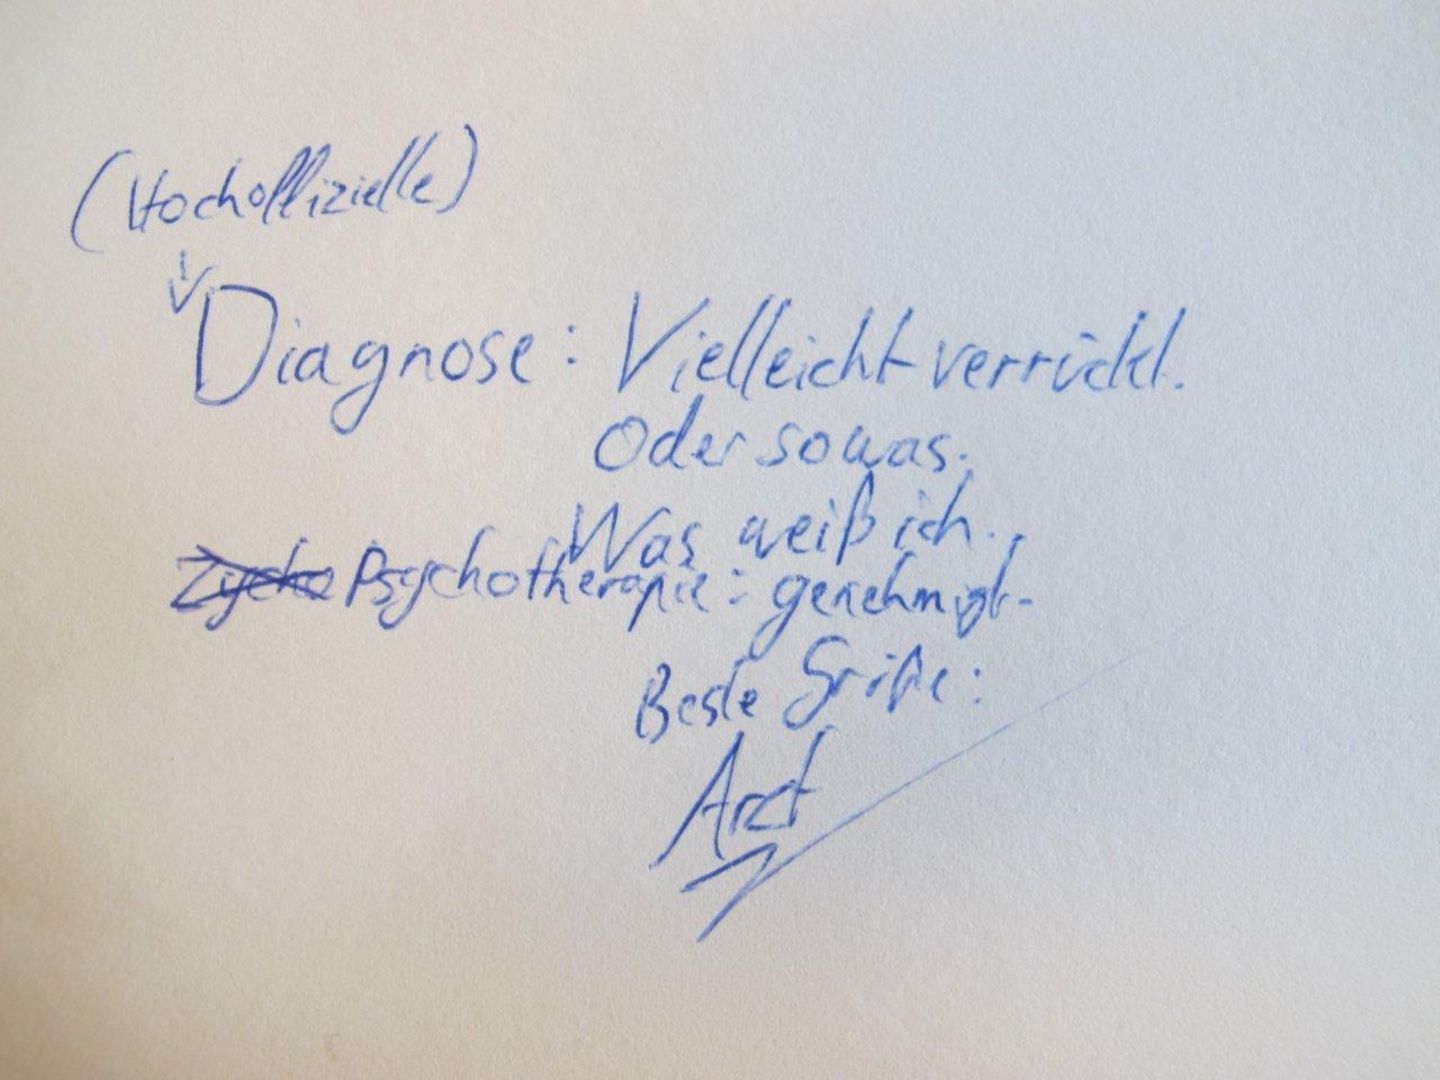 (Hochoffizielle)
Diagnose: Vielleicht verrückt.
Oder sowas.
Was weiß ich.
Zycho Psychotherapie: genehmigt.
Beste Grüße:
Arzt